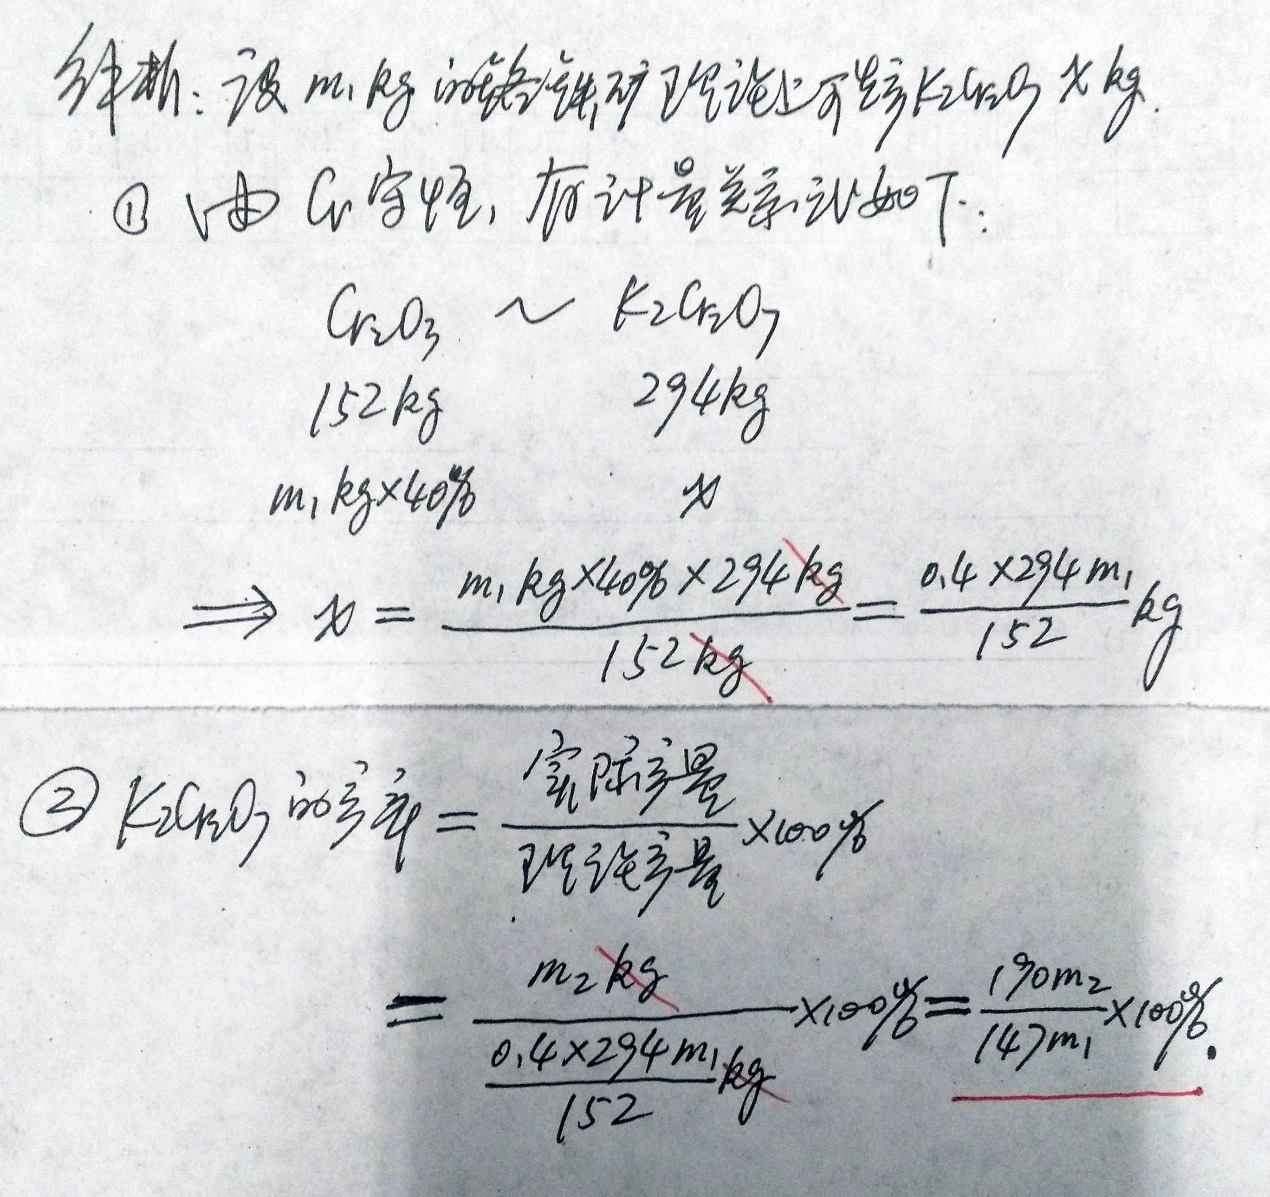 解析:设 m₁ kg 的铬铁矿理论上可生产K₂Cr₂O₇ x kg.
① 由 Cr 守恒,有计量关系式如下:
Cr₂O₃ ~ K₂Cr₂O₇
152kg 294kg
m₁ kg×40% x
⇒ x = (m₁ kg×40%×294kg)/(152kg) = (0.4×294m₁)/152 kg
② K₂Cr₂O₇的产率 = 实际产量/理论产量 ×100%
= (m₂ kg)/((0.4×294m₁)/152 kg) ×100% = (190m₂)/(147m₁) ×100%.